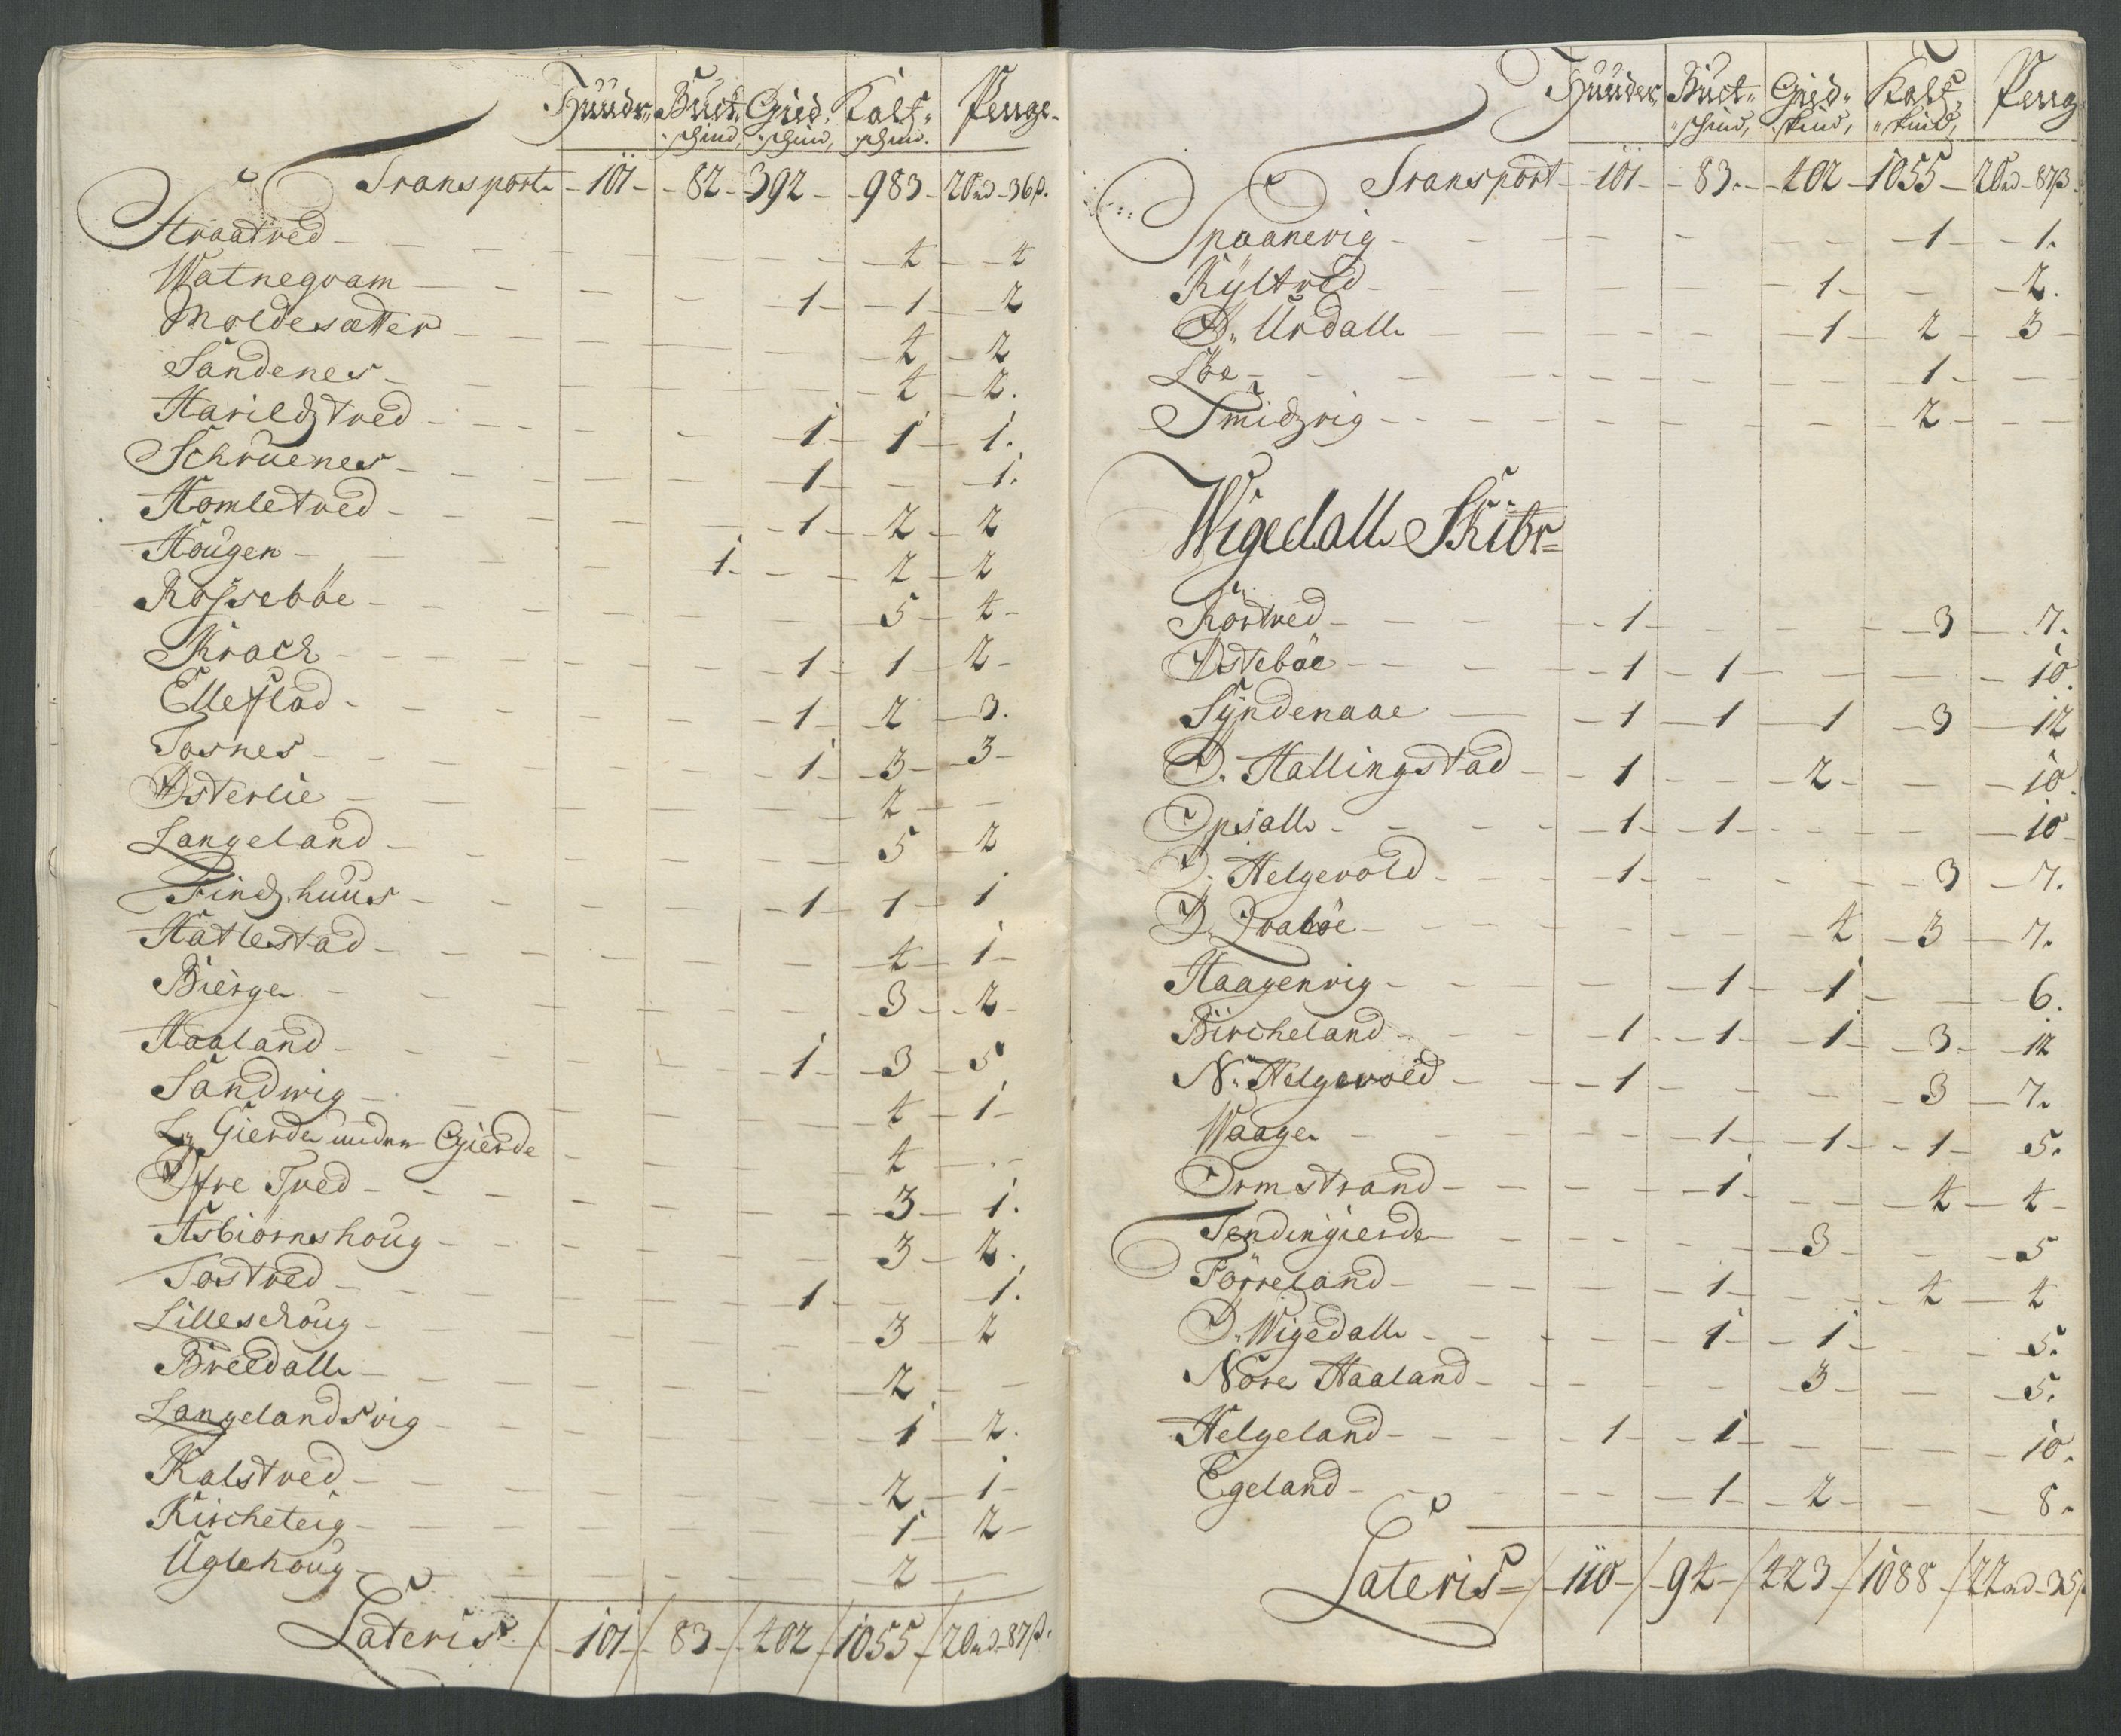 Huuder, Buck Gied. Kalf, Penge
schind, schind, schind.
Transport - 101 - 82 - 392 - 983 - 20 rd - 36 ß.
Straatved - 4 - 4
Watnegvam - 1 - 1 - 2
Moldesætter - 4 - 2
Sandenes - 4 - 2.
Harildztved - 1 - 1 - 1.
Schruenes - 1 - 1.
Homletved - 1 - 2 - 2
Hougen - 1 - 2 - 2
Rosseböe - 5 - 4 -
Krack - 1 - 1 - 2 -
Ellefstad - 1 - 2 - 3.
Tosnes - 1 - 3 - 3 -
Østerlie - 2 -
Langeland - 5 - 2
Findz huus - 1 - 1 - 1
Hatlestad - 4 - 1 -
Bierge - 3 - 2 -
Haaland - 1 - 3 - 5
Sandwig - 4 - 1 -
L. Gierde under Gierde - 4 - -
Øfre Tved - 3 - 1.
Asbiörnshoug - 3 - 2.
Tostved - 1 - 1.
Lilleschoug - 3 - 2
Breedall - 2 - -
Langelandsvig - 1 - 2.
Kalstved - 2 - 1 -
Kircheteig - 1 - 2 -
Uglehoug - 2 -
Lateris / - 101 - / 83 - / 402 / 1055 / 20 rd - 87 ß.
Huuder, Buct, Gied, Kalf, Peng
schind, skind, skind,
Transport - 101 - 83 - 402 - 1055 - 20 rd - 87 ß.
Spaanevig - 1 - 1.
Kyltved - 1 - 2.
Ø. Urdall - 1 - 2 - 3 -
Löe - 1 - -
Smidzvig - 2 - -
Wigedall Skibr=
Rörtved - 1 - 3 - 7.
Østeböe - 1 - 1 - 10.
Syndenaae - 1 - 1 - 1 - 3 - 12
Ø. Hallingstad - 1 - 2 - 10.
Opsall - 1 - 1 - 10 -
Ø. Helgevold - 1 - 3 - 7.
Ø. Qvaböe - 4 - 3 - 7.
Haagenvig - 1 - 1 - 6.
Bircheland - 1 - 1 - 1 - 3 - 12
N. Helgevold - 1 - 3 - 7.
Waage - 1 - 1 - 1 - 5.
Ormstrand - 1 - 4 - 4 -
Tendingierde - 3 - 5
Förreland - 1 - 4 - 4
Ø. Wigedall - 1 - 1 - 5.
Nöre Haaland - 3 - 5.
Helgeland - 1 - 1 - 10.
Egeland - 1 - 2 - 8.
Lateris / - 110 - / - 94 - / 423 / 1088 / 22 rd - 35 ß